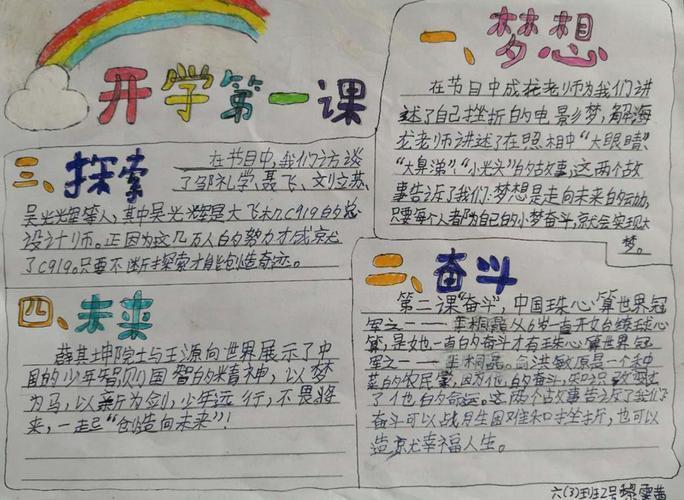 开学第一课
一、梦想
在节目中成龙老师为我们讲
述了自己挫折的电影梦,解海
龙老师讲述了在照相中“大眼睛”
“大鼻涕”、“小光头”的故事,这两个故
事告诉了我们:梦想是走向未来的动力,
只要每个人都为自己的小梦奋斗,就会实现大
梦。
三、探索
在节目中,我们访谈
了邹礼学、聂飞、刘立苏、
吴光辉等人,其中吴光辉是大飞机C919的总
设计师。正因为这几万人的努力才成就
了C919。只要不断探索才能创造奇迹。
二、奋斗
第二课“奋斗”,中国珠心算世界冠
军之一——桐磊从6岁一直开始练珠心
算,是她一直的奋斗才有珠心算世界冠
军之一——桐磊。俞洪敏原是一个种
菜的农民,因为他的奋斗,改变
了他的命运。这两个故事告诉了我们
奋斗可以战胜困难和挫折,也可以
造就幸福人生。
四、未来
薛其坤院士与王源向世界展示了中
国的少年智则国智的精神,以梦
为马,以新为剑,少年远行,不畏将
来,一起“创造向未来”!
六(3)班2号